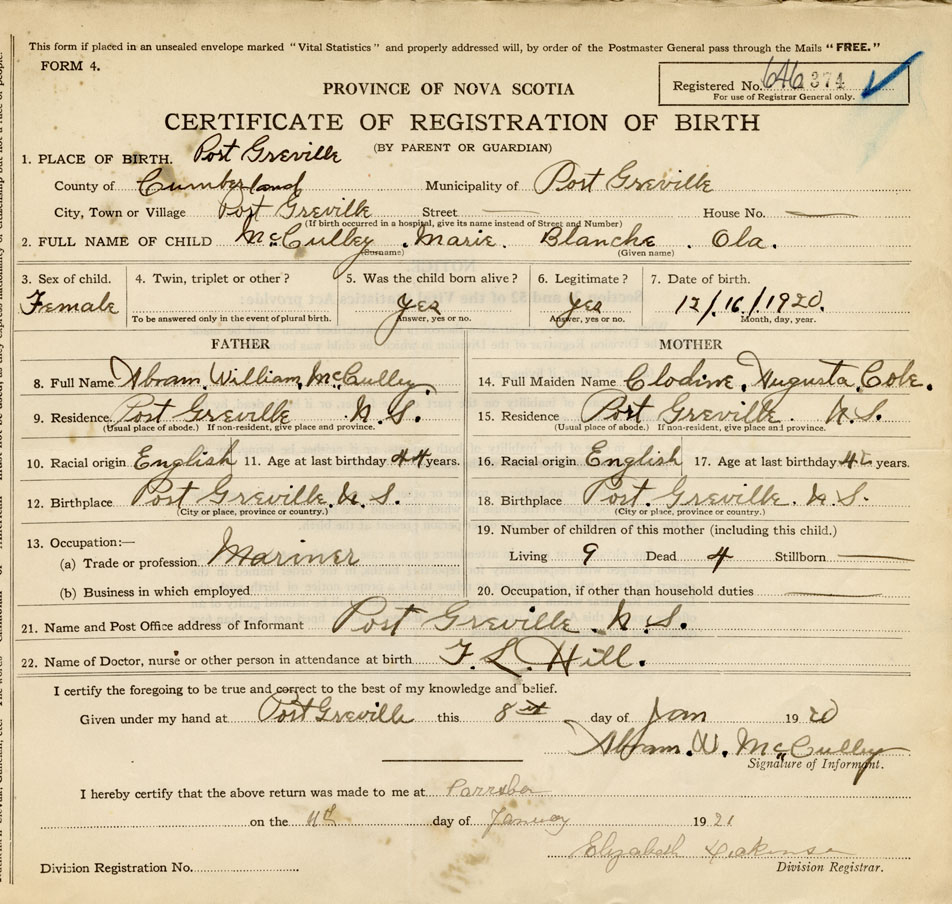 This form if placed in an unsealed envelope marked "Vital Statistics" and properly addressed will, by order of the Postmaster General pass through the Mails "FREE."
FORM 4.
Registered No. 646374
For use of Registrar General only.
PROVINCE OF NOVA SCOTIA
CERTIFICATE OF REGISTRATION OF BIRTH
(BY PARENT OR GUARDIAN)
1. PLACE OF BIRTH. Port Greville
County of Cumberland Municipality of Port Greville
City, Town or Village Port Greville Street House No.
(If birth occurred in a hospital, give its name instead of Street and Number)
2. FULL NAME OF CHILD McCulley Marie. Blanche. Ola.
(Surname) (Given name)
3. Sex of child. 4. Twin, triplet or other? 5. Was the child born alive? 6. Legitimate? 7. Date of birth.
Female Yes Yes 12/16/1920.
To be answered only in the event of plural birth. Answer, yes or no. Answer, yes or no. Month, day, year.
FATHER MOTHER
8. Full Name Abram William McCulley 14. Full Maiden Name Clodine. Augusta Cole.
9. Residence. Port Greville N.S. 15. Residence Port Greville N.S.
(Usual place of abode.) If non-resident, give place and province. (Usual place of abode.) If non-resident, give place and province.
10. Racial origin English 11. Age at last birthday 44 years. 16. Racial origin English 17. Age at last birthday years.
12. Birthplace Port Greville, N.S. 18. Birthplace Port Greville. N.S.
(City or place, province or country.) (City or place, province or country.)
19. Number of children of this mother (including this child.)
13. Occupation:—
(a) Trade or profession Mariner Living 9 Dead 4 Stillborn
(b) Business in which employed 20. Occupation, if other than household duties
21. Name and Post Office address of Informant Port Greville. N.S.
22. Name of Doctor, nurse or other person in attendance at birth F. L. Hill.
I certify the foregoing to be true and correct to the best of my knowledge and belief.
Given under my hand at Port Greville this 8 day of Jan 1920
Abram. W. McCulley
Signature of Informant.
I hereby certify that the above return was made to me at Parrsboro
on the 11th day of January 1921
Elizabeth
Division Registration No. Division Registrar.